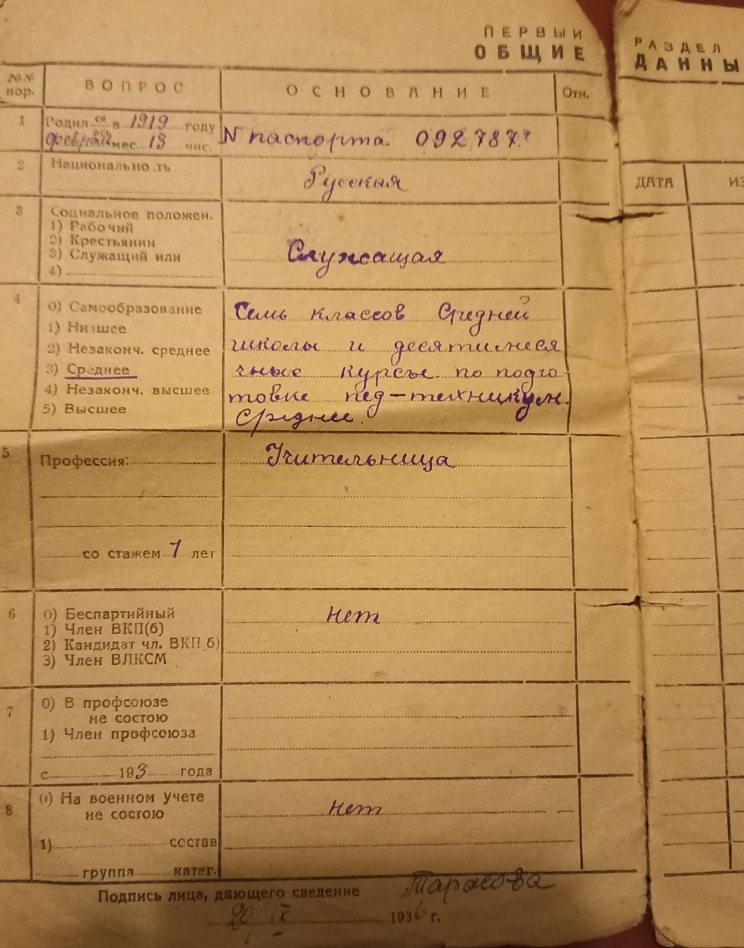 ПЕРВЫЙ
ОБЩИЕ
РАЗДЕЛ
ДАННЫ
№№ пор.
ВОПРОС
ОСНОВАНИЕ
Отм.
1
Родил ся в 1919 году
февраля мес. 13 чис.
N паспорта. 092787
2
Национально ть
Русская
3
Социальное положен.
1) Рабочий
2) Крестьянин
3) Служащий или
4)
Служащая
4
0) Самообразование
1) Низшее
2) Незаконч. среднее
3) Среднее
4) Незаконч. высшее
5) Высшее
Семь классов Средней
школы и десятимеся
чные курсы по подго
товке пед-техникум.
Среднее.
5
Профессия:
Учительница
со стажем 1 лет
6
0) Беспартийный
1) Член ВКП(б)
2) Кандидат чл. ВКП б)
3) Член ВЛКСМ
нет
7
0) В профсоюзе
не состою
1) Член профсоюза
с 193 года
8
0) На военном учете
не состою
1) состав
группа катег.
нет
Подпись лица, дающего сведение Тарасова
20/IX 1936 г.
ДАТА
ИЗ